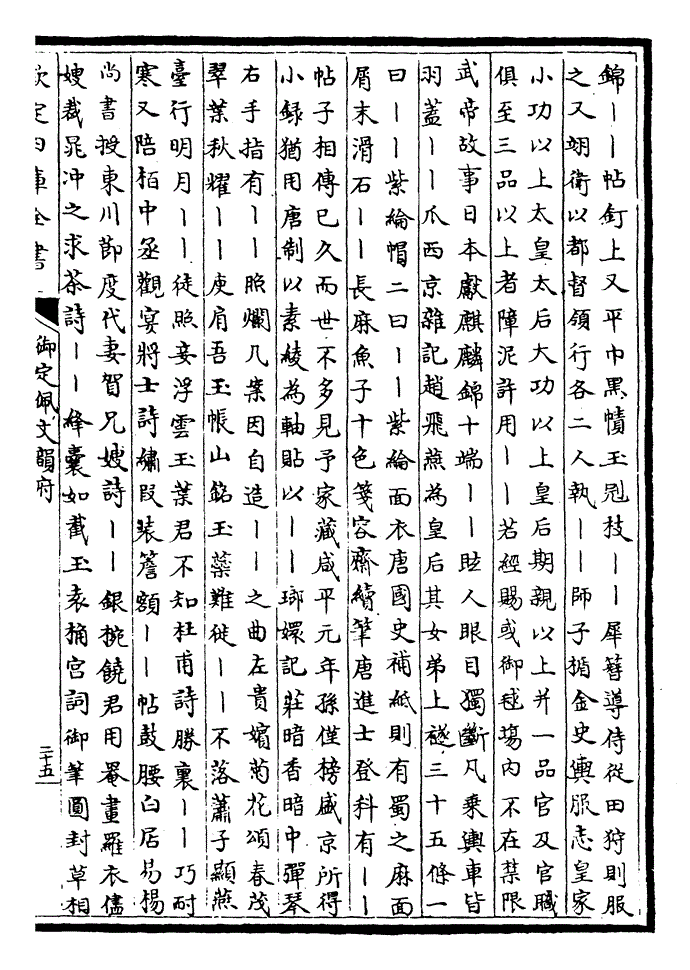 錦丨丨帖釘上又平巾黑幘玉冠枝丨丨犀簪導侍從田狩則服
之又翊衛以都督領行各二人執丨丨師子楯金史輿服志皇家
小功以上太皇太后大功以上皇后期親以上并一品官及官職
俱至三品以上者障泥許用丨丨若經賜或御毬場内不在禁限
武帝故事日本獻麒麟錦十端丨丨眩人眼目獨斷凡乗輿車皆
羽蓋丨丨爪西京雜記趙飛燕為皇后其女弟上襚三十五條一
曰丨丨紫綸帽二曰丨丨紫綸面衣唐國史補紙則有蜀之麻面
屑末滑石丨丨長麻魚子十色箋容齋續筆唐進士登科有丨丨
帖子相傳已久而世不多見予家藏咸平元年孫僅榜盛京所得
小録猶用唐制以素綾為軸貼以丨丨瑯嬛記莊暗香暗中彈琴
右手指有丨丨照爛几案因自造丨丨之曲左貴嬪菊花頌春茂
翠葉秋耀丨丨庾肩吾玉帳山銘玉蘂難徙丨丨不落蕭子顯燕
臺行明月丨丨徒照妾浮雲玉葉君不知杜甫詩勝裏丨丨巧耐
寒又陪柏中丞觀宴將士詩繡段装簷額丨丨帖鼓腰白居易楊
尚書授東川節度代妻賀兄嫂詩丨丨銀椀饒君用罨畫羅衣儘
嫂裁晁冲之求茶詩丨丨絳囊如截玉袁桷宫詞御筆圓封草相
欽定四庫全書
御定佩文韻府
二十五